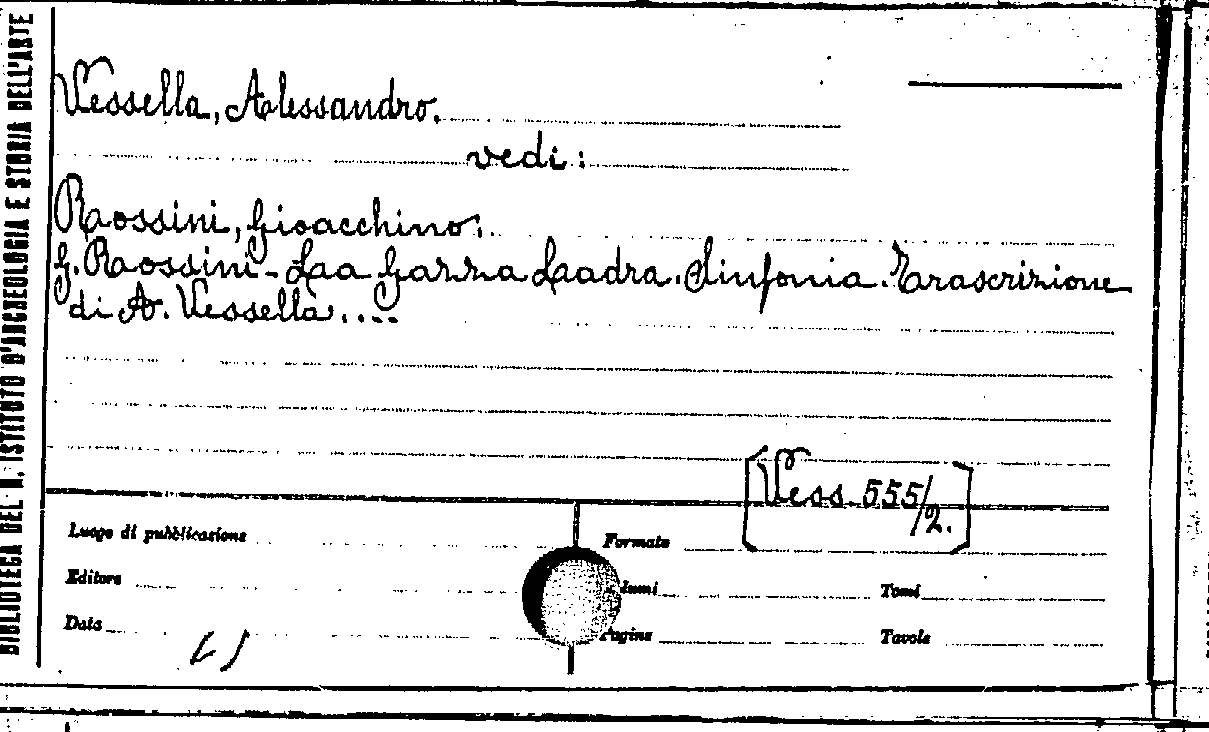 BIBLIOTECA DEL R. ISTITUTO D'ARCHEOLOGIA E STORIA DELL'ARTE
Vessella, Alessandro.
vedi:
Rossini, Gioacchino.
G. Rossini - La Gazza Ladra. Sinfonia. Trascrizione
di A. Vessella....
[Vess. 555/2.]
Luogo di pubblicazione
Formato
Editore
lumi
Tomi
Data
Pagine
Tavole